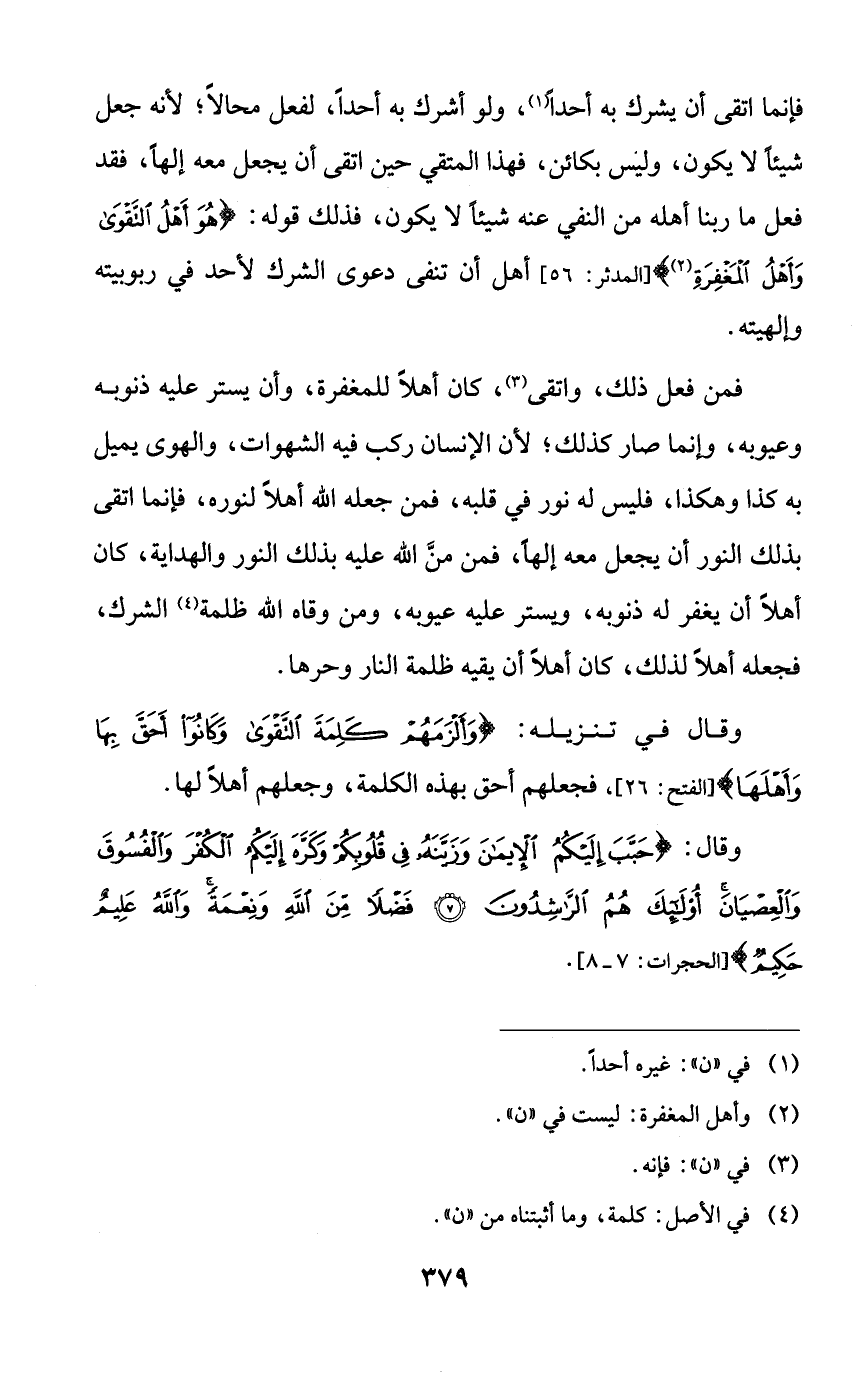 فإنما اتقى أن يشرك به أحداً(١)، ولو أشرك به أحداً، لفعل محالاً؛ لأنه جعل
شيئاً لا يكون، وليس بكائن، فهذا المتقي حين اتقى أن يجعل معه إلهاً، فقد
فعل ما ربنا أهله من النفي عنه شيئاً لا يكون، فذلك قوله: ﴿هُوَ أَهْلُ ٱلتَّقْوَىٰ
وَأَهْلُ ٱلْمَغْفِرَةِ(٢)﴾[المدثر: ٥٦] أهل أن تنفى دعوى الشرك لأحد في ربوبيته
وإلهيته.
فمن فعل ذلك، واتقى(٣)، كان أهلاً للمغفرة، وأن يستر عليه ذنوبه
وعيوبه، وإنما صار كذلك؛ لأن الإنسان ركب فيه الشهوات، والهوى يميل
به كذا وهكذا، فليس له نور في قلبه، فمن جعله الله أهلاً لنوره، فإنما اتقى
بذلك النور أن يجعل معه إلهاً، فمن منَّ الله عليه بذلك النور والهداية، كان
أهلاً أن يغفر له ذنوبه، ويستر عليه عيوبه، ومن وقاه الله ظلمة(٤) الشرك،
فجعله أهلاً لذلك، كان أهلاً أن يقيه ظلمة النار وحرها.
وقال في تنزيله: ﴿وَأَلْزَمَهُمْ كَلِمَةَ ٱلتَّقْوَىٰ وَكَانُوٓا۟ أَحَقَّ بِهَا
وَأَهْلَهَا﴾[الفتح: ٢٦]، فجعلهم أحق بهذه الكلمة، وجعلهم أهلاً لها.
وقال: ﴿حَبَّبَ إِلَيْكُمُ ٱلْإِيمَٰنَ وَزَيَّنَهُۥ فِى قُلُوبِكُمْ وَكَرَّهَ إِلَيْكُمُ ٱلْكُفْرَ وَٱلْفُسُوقَ
وَٱلْعِصْيَانَ ۚ أُو۟لَٰٓئِكَ هُمُ ٱلرَّٰشِدُونَ ٧ فَضْلًا مِّنَ ٱللَّهِ وَنِعْمَةً ۚ وَٱللَّهُ عَلِيمٌ
حَكِيمٌ﴾[الحجرات: ٧ـ٨].
(١) في «ن»: غيره أحداً.
(٢) وأهل المغفرة: ليست في «ن».
(٣) في «ن»: فإنه.
(٤) في الأصل: كلمة، وما أثبتناه من «ن».
٣٧٩